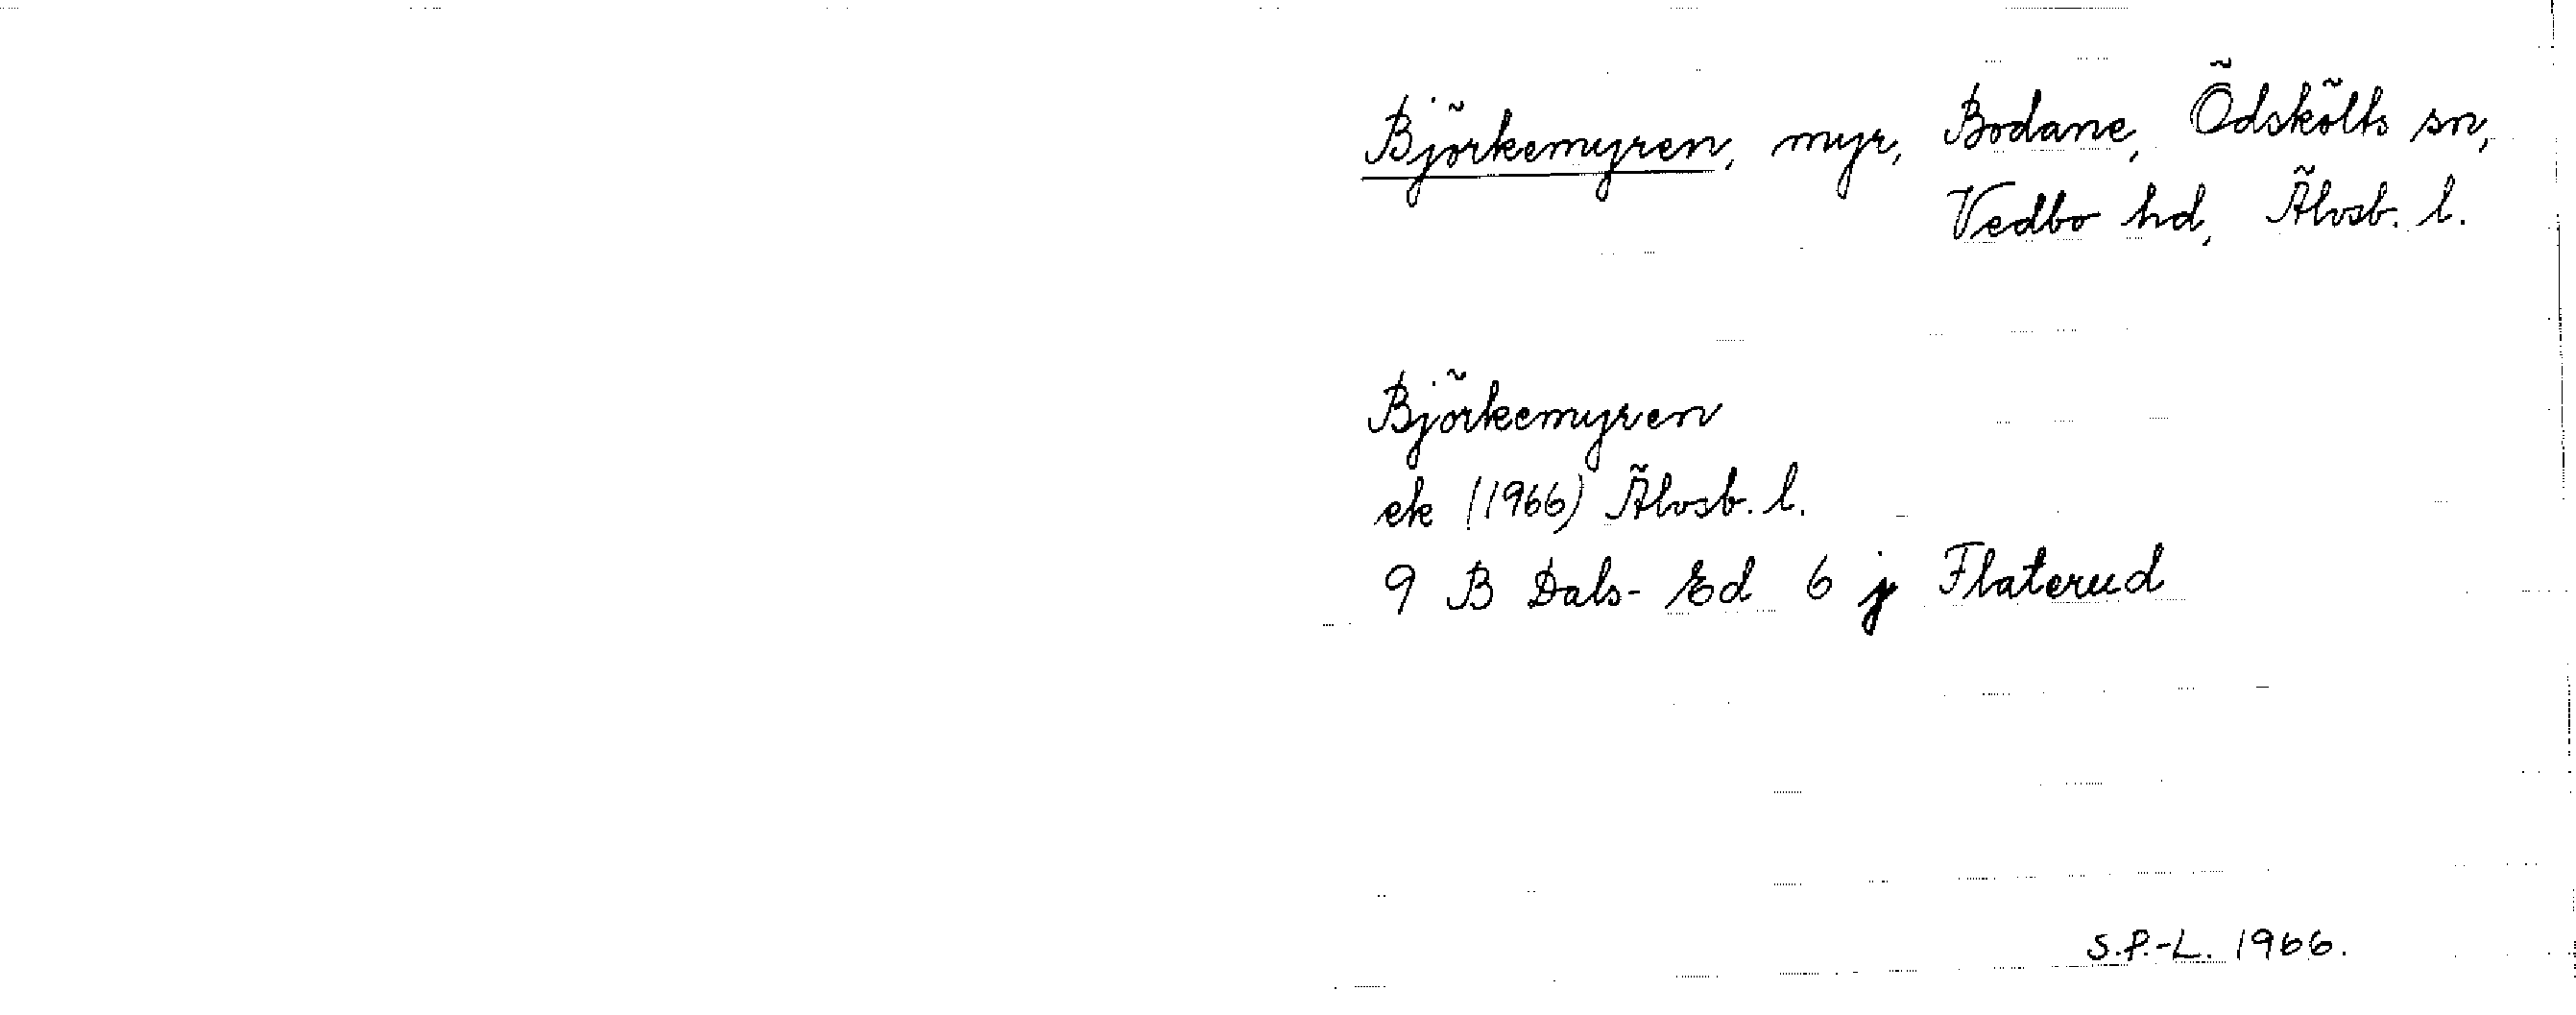 Björkemyren, myr, Bodane, Ödskölts sn,
Vedbo hd, Älvsb. l.
Björkemyren
ek (1966) Älvsb. l.
9 B Dals-Ed 6 j Flaterud
S.P.-L. 1966.